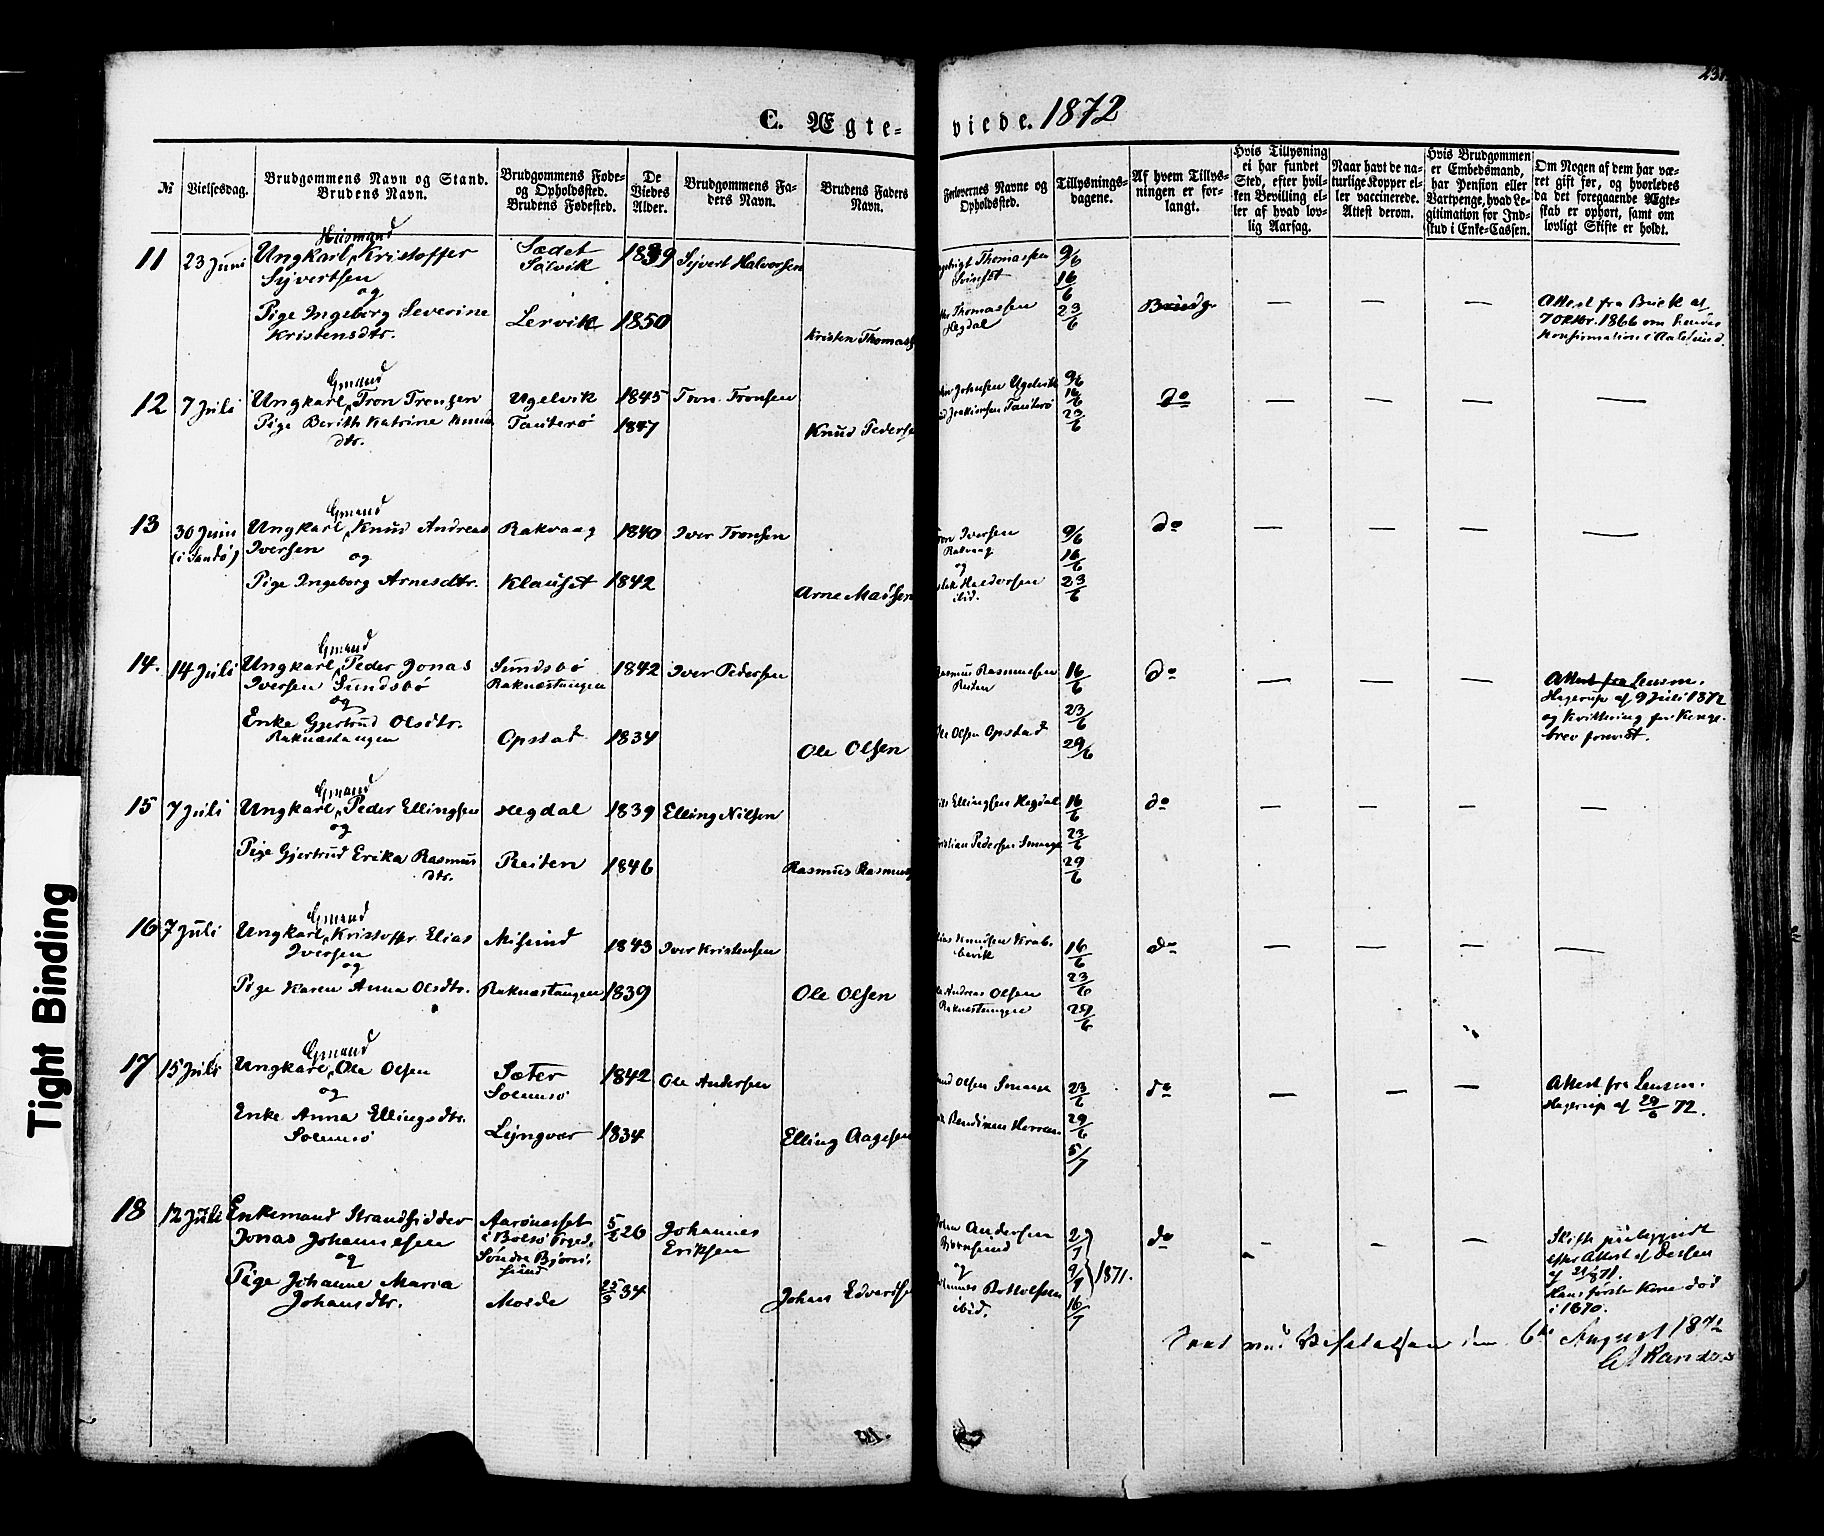 C. Ægte- viede. 1872
№
Vielsesdag.
Brudgommens Navn og Stand.
Brudens Navn.
Brudgommens Føde-
og Opholdssted.
Brudens Fødested.
De
Viedes
Alder.
Brudgommens Fa-
ders Navn.
Brudens Faders
Navn.
Forlovernes Navne og
Opholdssted.
Tillysnings-
dagene.
Af hvem Tillys-
ningen er for-
langt.
Hvis Tillysning
ei har fundet
Sted, efter hvil-
ken Bevilling el-
ler af hvad lov-
lig Aarsag.
Naar havt de na-
turlige Kopper el-
ler vaccinerede.
Attest derom.
Hvis Brudgommen
er Embedsmand,
har Pension eller
Vartpenge, hvad Le-
gitimation for Ind-
skud i Enke-Cassen.
Om Nogen af dem har væ-
ret gift før, og hvorledes
da det foregaaende Ægte-
skab er ophørt, samt om
lovligt Skifte er holdt.
11 23 Juni
Husmand
Ungkarl Kristoffer
Syvertsen
og
Pige Ingeborg Severine
Kristensdtr.
Sædet
Solvik
Lervik
1839
1850
Syvert Halvorsen
Kristen Thomas
Thomassen
Thomassen
Hegdal
9/6
16/6
23/6
Brudg.
— — —
Attest fra
1866 om hendes
Konfirmation i Aalesund.
12 7 Juli
Gmand
Ungkarl Tron Tronsen
Pige Berith Katrine Knuds
dtr.
Ugelvik
Tauterø
1845
1847
Tron Tronsen
Knud Peders
Johnsen Ugelvik
Joakimsen Tauterø
9/6
16/6
23/6
do
— — — —
13 30 Juni
(i Sandø)
Gmand
Ungkarl Knud Andreas
Iversen
og
Pige Ingeborg Arnesdtr.
Rakvaag
Klauset
1840
1842
Iver Tronsen
Arne
Iversen
Rakvaag
og
Haldorsen
ibid.
9/6
16/6
23/6
do
— — — —
14. 14 Juli
Gmand
Ungkarl Peder Jonas
Iversen Sundsbø
og
Enke Gjertrud Olsdtr.
Raknæstangen
Sundsbø
Raknæstangen
Opstad
1842
1834
Iver Pedersen
Ole Olsen
Rasmussen
Reiten
Ole Olsen Opstad
16/6
23/6
29/6
do
— — —
Attest fra Lensm.
Hagerup af 9 Juli 1872
og Kvittering for Penge-
brev forevist.
15 7 Juli
Gmand
Ungkarl Peder Ellingsen
og
Pige Gjertrud Erika Rasmus
dtr.
Hegdal
Reiten
1839
1846
Elling Nilsen
Rasmus Rasmus
Ellingsen Hegdal
Pedersen
16/6
23/6
29/6
do
— — — —
16 7 Juli
Gmand
Ungkarl Kristoffer Elias
Iversen
og
Pige Karen Anna Olsdtr.
Misund
Raknæstangen
1843
1839
Iver Kristensen
Ole Olsen
Knudsen
Andreas Olsen
Raknæstangen
16/6
23/6
29/6
do
— — — —
17 15 Juli
Gmand
Ungkarl Ole Olsen
og
Enke Anna Ellingsdtr.
Solemsø
Sæter
Solemsø
Lyngvær
1842
1834
Ole Andersen
Elling Aagesen
Olsen
Bendixen
23/6
29/6
5/7
do
— — —
Attest fra Lensm.
Hagerup af 29/6 72.
18 12 Juli
Enkemand Strandsidder
Jonas Johannesen
og
Pige Johanne Maria
Johansdtr.
Aarønæsset
i Bolsø Prgd.
Søndre Bjørn-
sund
Molde
26
25/3 34
Johannes
Eriksen
Johan Edvard
Andersen
Bjørnsund
og
ibid.
2/7
9/7
16/7
1871.
do
— — —
Skifte
efter Attest af
Hans første Kone død
i 1870.
August 1872
Tight Binding